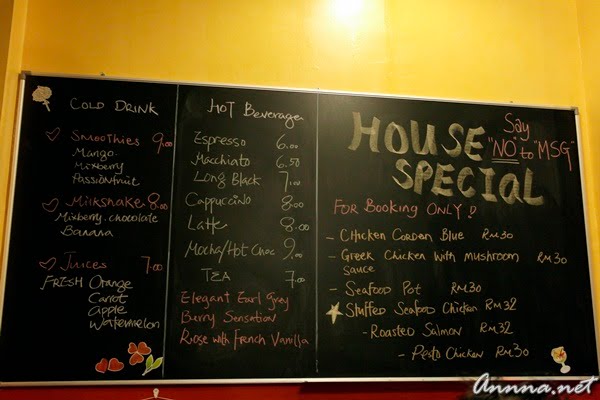 COLD DRINK
Smoothies 9.00
Mango
Mixberry
Passionfruit
Milkshake 8.00
Mixberry. chocolate
Banana
Juices 7.00
FRESH Orange
Carrot
apple
Watermelon
HOT Beverage
Espresso 6.00
Macchiato 6.50
Long Black 7.00
Cappuccino 8.00
Latte 8.00
Mocha/Hot Choc 9.00
TEA 7.00
Elegant Earl Grey
Berry Sensation
Rose with French Vanilla
HOUSE
SPECIAL
Say
"NO" to "MSG"
FOR Booking ONLY!
- Chicken Corden Blue RM30
- Greek Chicken with mushroom RM30
sauce
- Seafood Pot RM30
Stuffed Seafood Chicken RM32
- Roasted Salmon RM32
- Pesto Chicken RM30
Annna.net